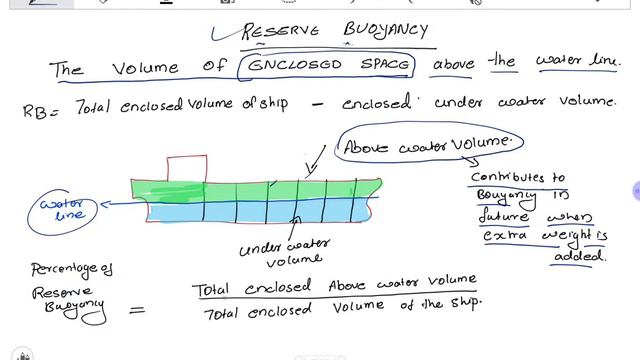 RESERVE BUOYANCY
The volume of ENCLOSED SPACE above the water line.
RB = Total enclosed volume of ship - enclosed under water volume.
Above water volume.
Contributes to
Bouyancy in
future when
extra weight is
added.
water
line
under water
volume
Percentage of
Reserve
Buoyancy = Total enclosed Above water volume
Total enclosed volume of the ship.